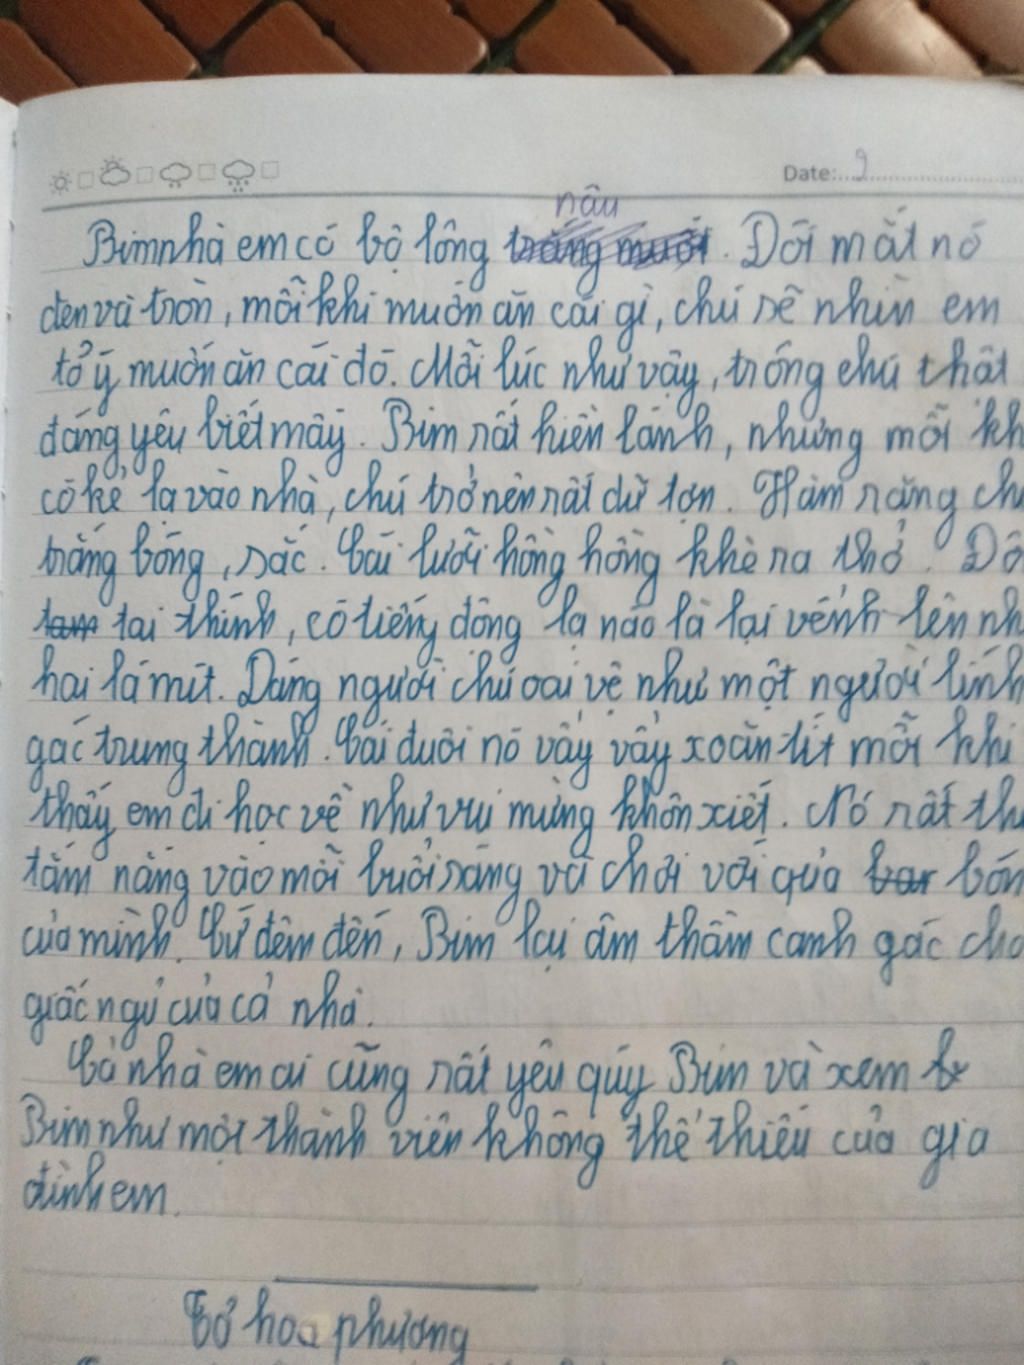 Date: 9
nâu
Bim nhà em có bộ lông trắng mướt. Đôi mắt nó
đen và tròn, mỗi khi muốn ăn cái gì, chú sẽ nhìn em
tỏ ý muốn ăn cái đó. Mỗi lúc như vậy, trông chú thật
đáng yêu biết mấy. Bim rất hiền lành, nhưng mỗi kh
có kẻ lạ vào nhà, chú trở nên rất dữ tợn. Hàm răng ch
trắng bóng, sắc. Cái lưỡi hồng hồng khè ra thở. Đô
tai thính, có tiếng động lạ nào là lại vểnh lên nh
hai lá mít. Dáng người chú oai vệ như một người lính
gác trung thành. Cái đuôi nó vẩy vẩy xoăn tít mỗi khi
thấy em đi học về như vui mừng khôn xiết. Nó rất th
tắm nắng vào mỗi buổi sáng và chơi với quả bón
của mình. Cứ đêm đến, Bim lại âm thầm canh gác cho
giấc ngủ của cả nhà.
Cả nhà em ai cũng rất yêu quý Bim và xem
Bim như một thành viên không thể thiếu của gia
đình em.
Tơ hoa phượng